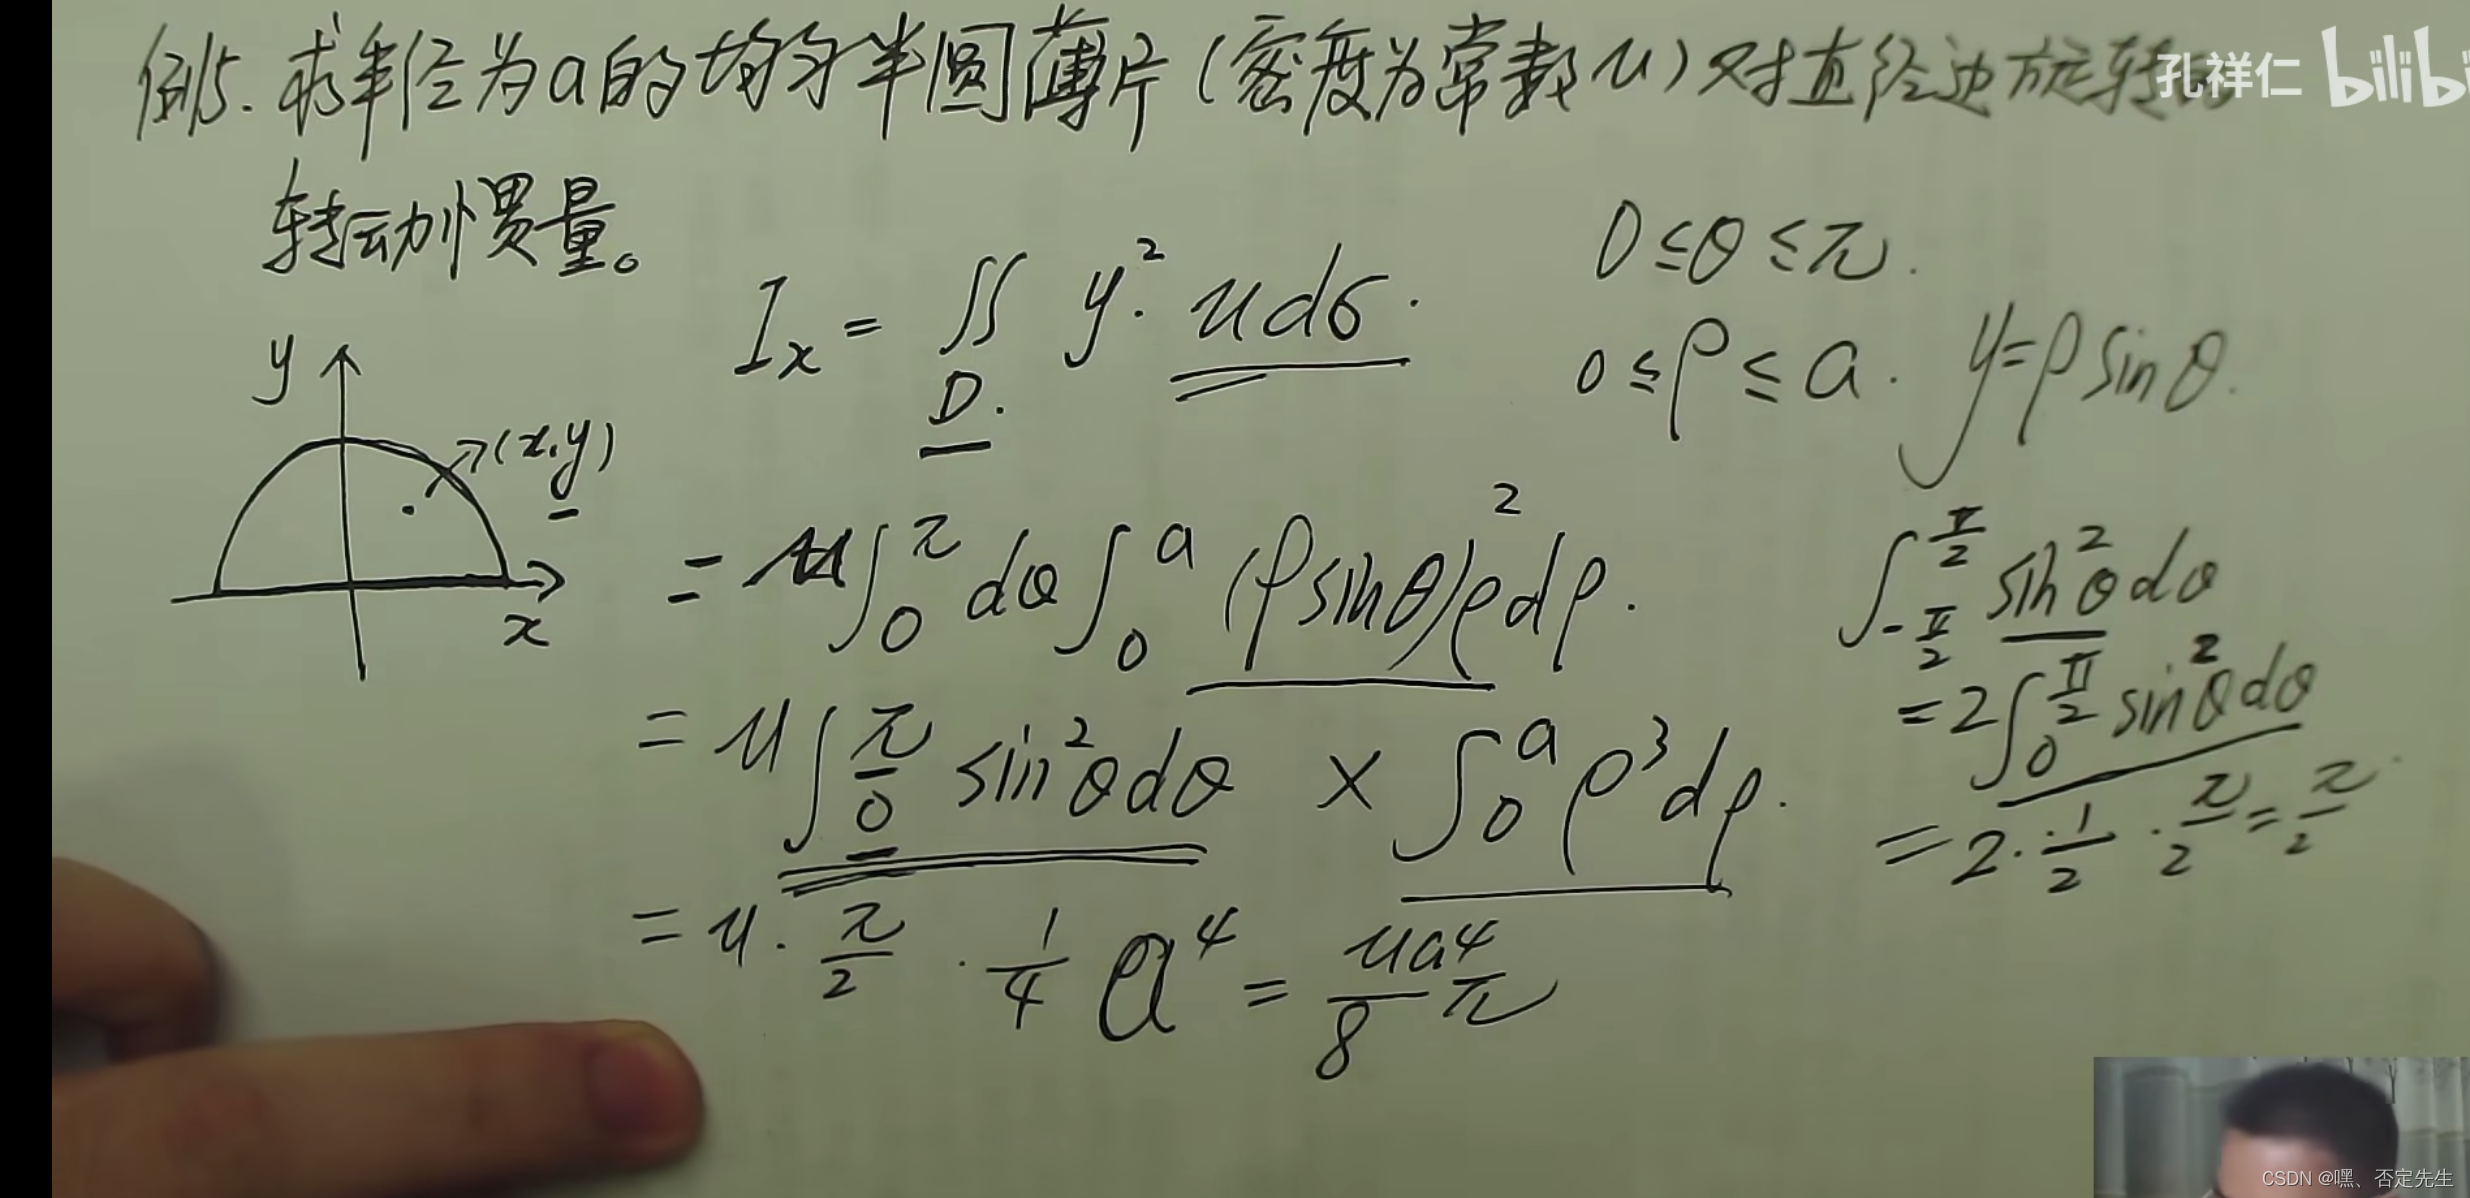 例5. 求半径为a的均匀半圆薄片(密度为常数u)对直径边旋转
孔祥仁 bilibi
转动惯量。
I_x = ∬_D y²·udσ.
0≤θ≤π.
0≤ρ≤a. y=ρsinθ.
y
(x,y)
x
= u∫_0^π dθ∫_0^a (ρsinθ)²ρdρ.
= u∫_0^π sin²θdθ × ∫_0^a ρ³dρ.
= u·π/2·1/4 a⁴ = ua⁴/8 π
∫_{-π/2}^{π/2} sin²θdθ
=2∫_0^{π/2} sin²θdθ
=2·1/2·π/2=π/2
CSDN @嘿、否定先生